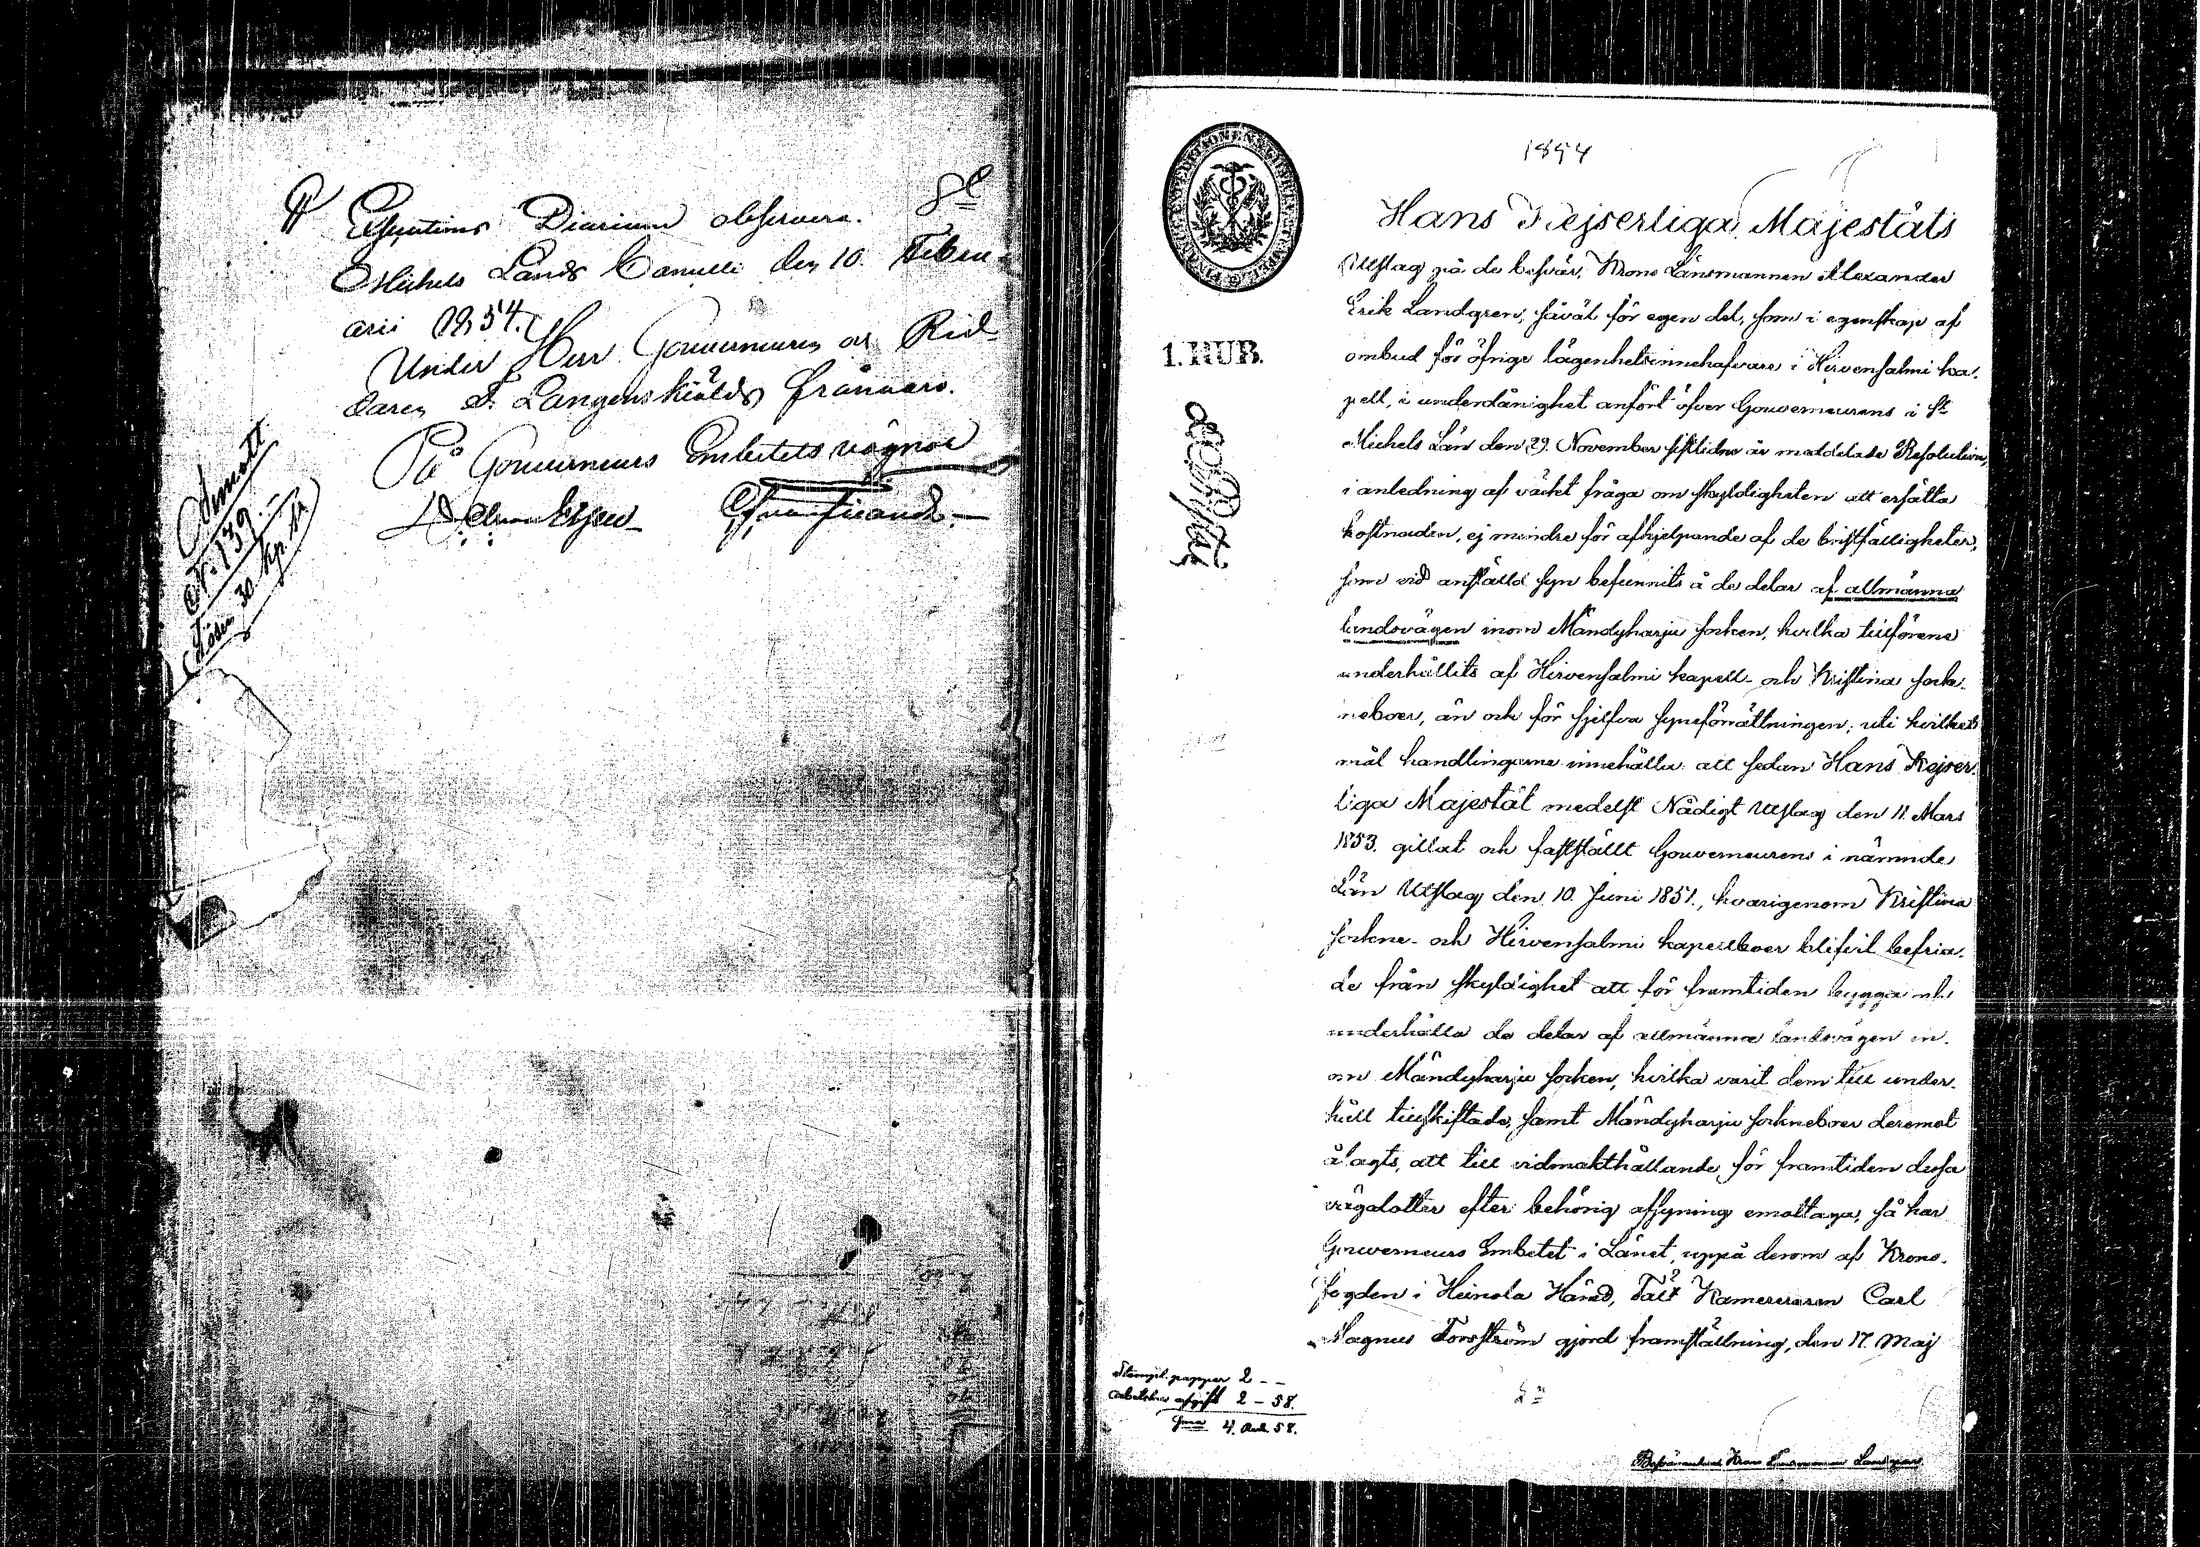 Expeditions Diarium observera. St
Michels Lands Cancelli den 10. Febru-
arii 1854.
Under Herr Gouverneuren och Rid-
daren F. Langenskiölds frånvaro.
På Gouverneurs Embetets vägnar
Anmält
N. 139.
Lösen 30 kop. Sr
1854
1. RUB.
Afskrift
Hans Kejserliga Majestäts
Utslag på de besvär, Krono Länsmannen Alexander
Erik Landgren, såväl för egen del, som i egenskap af
ombud för öfrige lägenhetsinnehafvare i Hirvensalmi ka-
pell, i underdånighet anfört öfver Gouverneurens i St
Michels Län den 29. November sistlidne år meddelade Resolution,
i anledning af väckt fråga om skyldigheten att ersätta
kostnaden, ej mindre för afhjelpande af de bristfälligheter,
som vid anställd syn befunnits å de delar af allmänna
landsvägen inom Mändyharju socken, hvilka tillförene
underhållits af Hirvensalmi kapell- och Kristina sock-
neboer, än och för sjelfva syneförrättningen; uti hvilket
mål handlingarne innehålla: att sedan Hans Kejser-
liga Majestät medelst Nådigt Utslag den 11. Mars
1853. gillat och fastställt Gouverneurens i nämnde
Län Utslag den 10. Juni 1851., hvarigenom Kristina
sockne- och Hirvensalmi kapellboer blifvit befria-
de från skyldighet att för framtiden bygga och
underhålla de delar af allmänna landsvägen in-
om Mändyharju socken, hvilka varit dem till under-
håll tillskiftade, samt Mändyharju sockneboer deremot
ålagts, att till vidmakthållande för framtiden dessa
vägalotter efter behörig afsyning emottaga, så har
Gouverneurs Embetet i Länet, uppå derom af Krono-
fogden i Heinola Härad, Fält Kamereraren Carl
Magnus Forsström gjord framställning, den 17. Maj
Stämpl. papper 2 - -
arbetshus afgift 2 - 58.
S:ma 4. Rub. 58.
Besvärande Krono Länsmannen Landgren